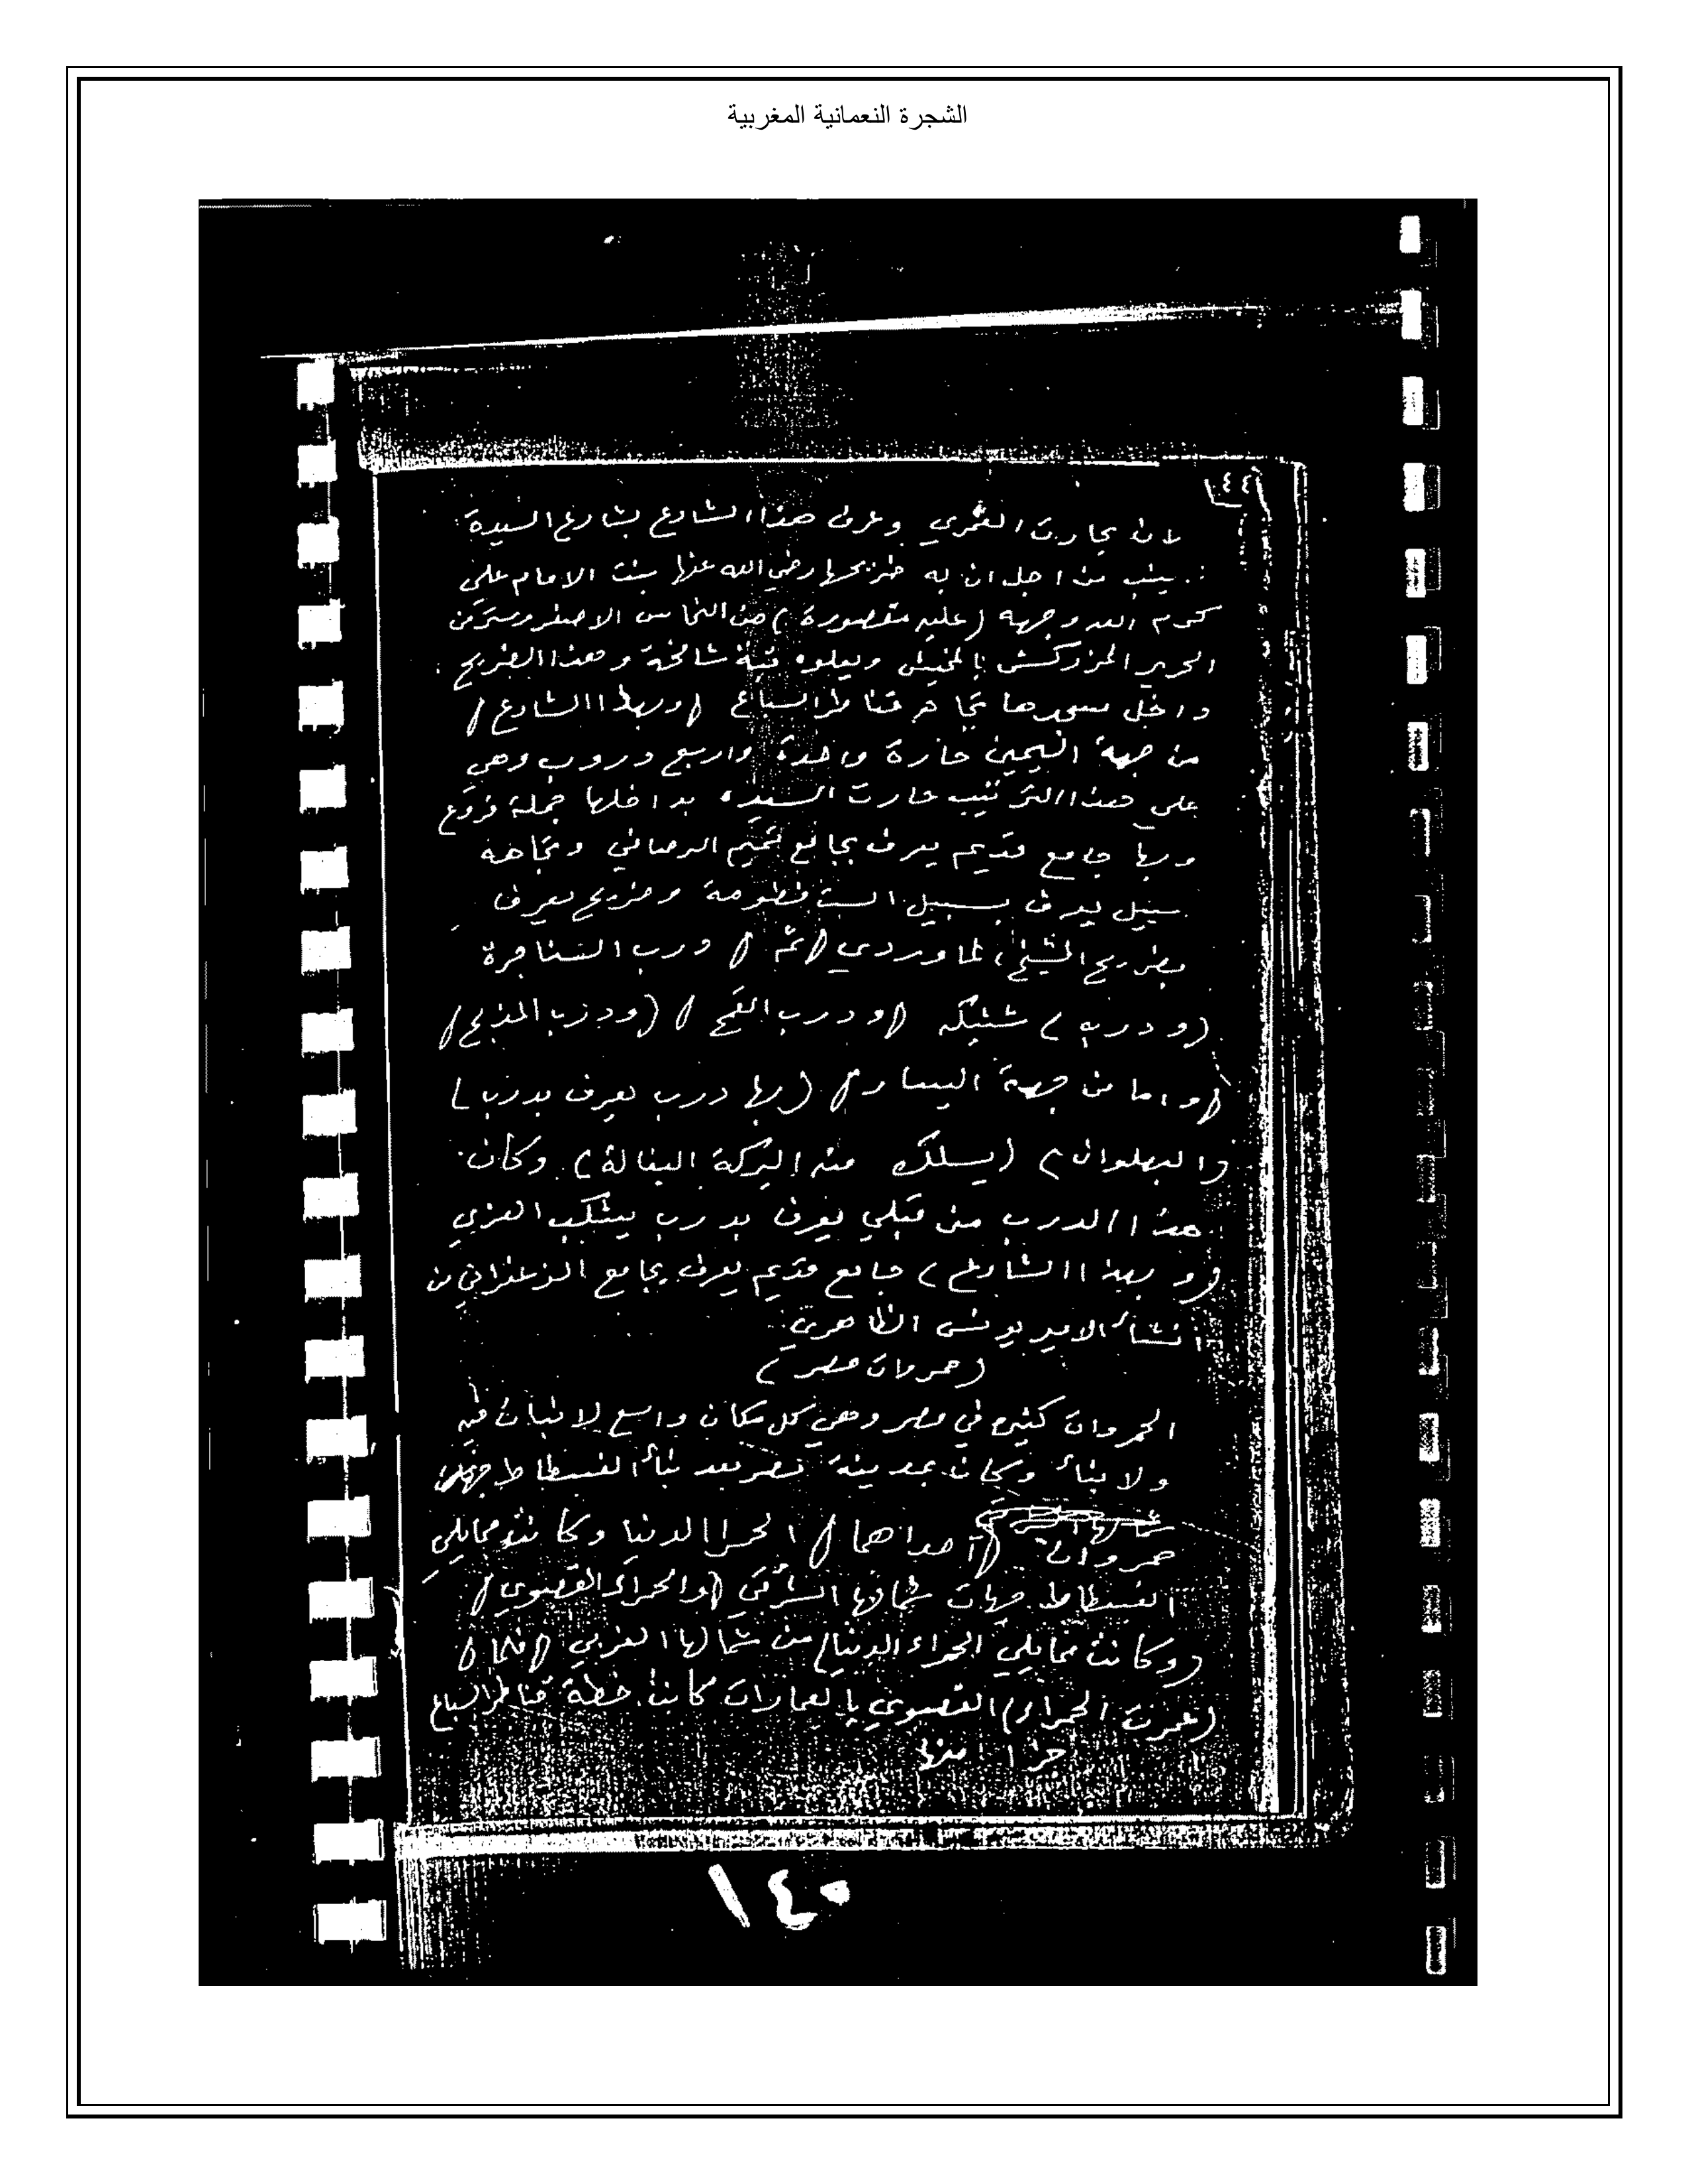 الشجرة النعمانية المغربية
١٤٤
لان بحارت العمري وعرف هذا الشارع بشارع السيدة
زينب من اجل ان به ضريحها رضي الله عنها بنت الامام علي
كرم الله وجهه (عليه مقصورة) من النحاس الاصفر وستر من
الحرير المزركش بالمخيش ويعلوه قبة شامخة وهذا الضريح
داخل مسجدها تجاه قناطر السباع (وبهذا الشارع)
من جهة اليمين حارة واحدة واربع دروب وهي
على هذا الترتيب حارت السيده بداخلها جملة فروع
وبها جامع قديم يعرف بجامع تميم الرصافي وتجاهه
سبيل يعرف بسبيل الست فطومة وضريح يعرف
بضريح الشيخ الماوردي (ثم) درب السناجرة
(ودرب) شنبكه (ودرب القمح) (ودرب المذبح)
(واما من جهة اليسار) (بها درب يعرف بدرب)
(البهلوان) (يسلك منه البركة البغالة) وكان
هذا الدرب من قبلي يعرف بدرب العزي
(وبهذا الشارع) جامع قديم يعرف بجامع الزعفراني من
انشأ الامير يونس الظاهري
(حمروات مصر)
الحمروات كثيره في مصر وهي كل مكان واسع لا نبات فيه
ولا بناء وكان بمدينة مصر بعد بناء الفسطاط
حمروان (احداهما) الحمرا الدنيا وكانت ممايلي
الفسطاط جهات شمالها الشرقي (والحمراء القصوي)
(وكانت ممايلي الحمراء الدنيا) من شمالها الغربي (فلما)
(عمرت الحمراء) القصوي بالعمارات كانت خطة قناطر السباع
جزا منها
١٤٠